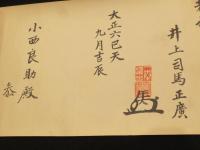 井上司馬正廣
大正六巳天
九月吉辰
小西良助殿